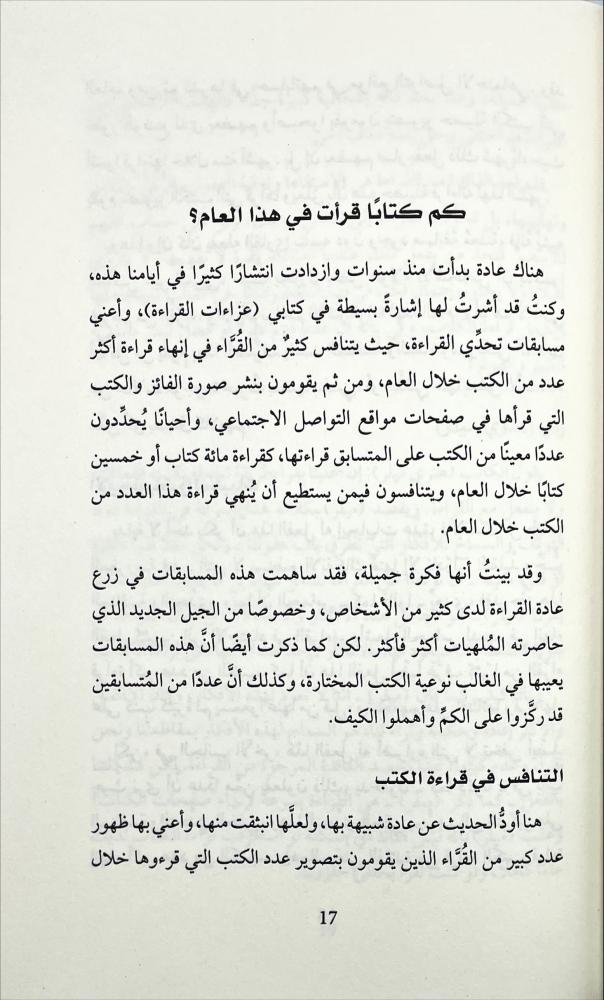 كم كتابًا قرأت في هذا العام؟
هناك عادة بدأت منذ سنوات وازدادت انتشارًا كثيرًا في أيامنا هذه،
وكنتُ قد أشرتُ لها إشارةً بسيطة في كتابي (عزاءات القراءة)، وأعني
مسابقات تحدِّي القراءة، حيث يتنافس كثيرٌ من القُرَّاء في إنهاء قراءة أكثر
عدد من الكتب خلال العام، ومن ثم يقومون بنشر صورة الفائز والكتب
التي قرأها في صفحات مواقع التواصل الاجتماعي، وأحيانًا يُحدِّدون
عددًا معينًا من الكتب على المتسابق قراءتها، كقراءة مائة كتاب أو خمسين
كتابًا خلال العام، ويتنافسون فيمن يستطيع أن يُنهي قراءة هذا العدد من
الكتب خلال العام.
وقد بينتُ أنها فكرة جميلة، فقد ساهمت هذه المسابقات في زرع
عادة القراءة لدى كثير من الأشخاص، وخصوصًا من الجيل الجديد الذي
حاصرته المُلهيات أكثر فأكثر. لكن كما ذكرت أيضًا أنَّ هذه المسابقات
يعيبها في الغالب نوعية الكتب المختارة، وكذلك أنَّ عددًا من المُتسابقين
قد ركَّزوا على الكمِّ وأهملوا الكيف.
التنافس في قراءة الكتب
هنا أودُّ الحديث عن عادة شبيهة بها، ولعلَّها انبثقت منها، وأعني بها ظهور
عدد كبير من القُرَّاء الذين يقومون بتصوير عدد الكتب التي قرءوها خلال
17